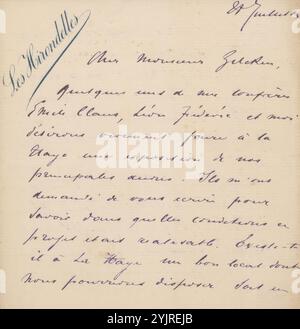 Les Hirondelles
21 Juillet
Cher Monsieur Zilcken,
Quelques uns de mes confrères
Emile Claus, Léon Fréderic et moi
désirons vivement faire à la
Haye une exposition de nos
principales œuvres. Ils m'ont
demandé de vous écrire pour
savoir dans quelles conditions ce
projet était réalisable. Existe-t-
il à La Haye un bon local dont
nous pourrions disposer soit en
alamy
Image ID: 2YJREJB
www.alamy.com